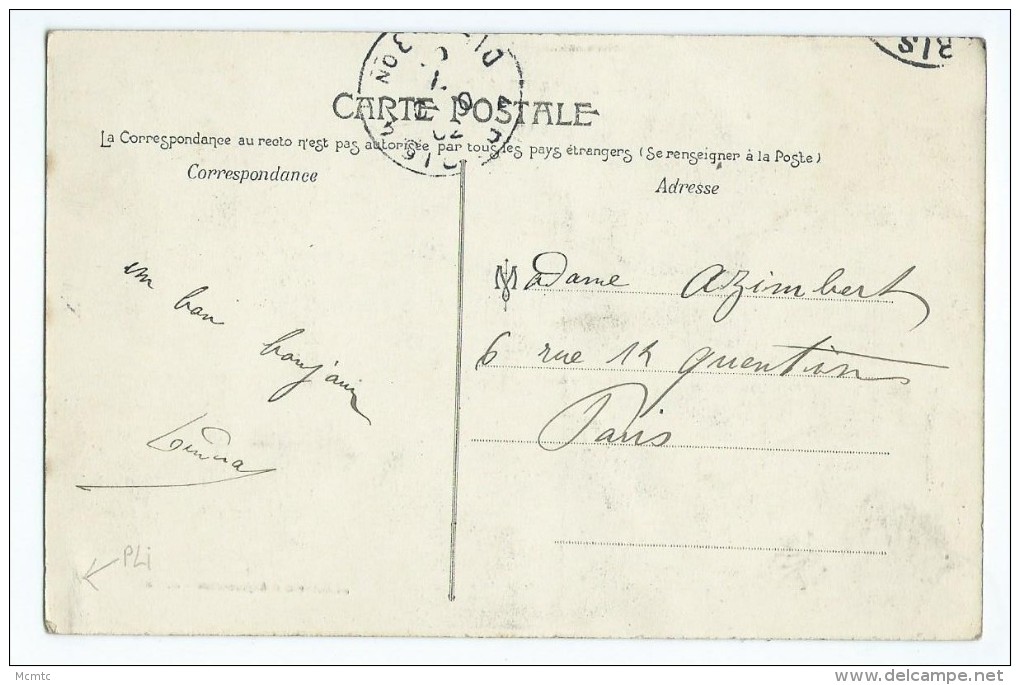 RIS
CARTE POSTALE
La Correspondance au recto n'est pas autorisée par tous les pays étrangers (Se renseigner à la Poste)
Correspondance
Adresse
un
bon
bonjour
Madame Azimbert
6 rue St quentin
Paris
PLi
Mcmtc
delcampe.net